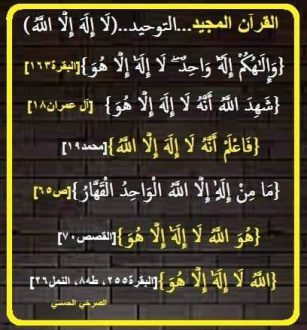 القرآن المجيد...التوحيد...(لَا إِلَهَ إِلَّا اللَّهُ)
{وَإِلَهُكُمْ إِلَهٌ وَاحِدٌ ۖ لَا إِلَهَ إِلَّا هُوَ}[البقرة١٦٣]
{شَهِدَ اللَّهُ أَنَّهُ لَا إِلَهَ إِلَّا هُوَ}[آل عمران١٨]
{فَاعْلَمْ أَنَّهُ لَا إِلَهَ إِلَّا اللَّهُ}[محمد١٩]
{مَا مِنْ إِلَهٍ إِلَّا اللَّهُ الْوَاحِدُ الْقَهَّارُ}[ص٦٥]
{هُوَ اللَّهُ لَا إِلَهَ إِلَّا هُوَ}[القصص٧٠]
{اللَّهُ لَا إِلَهَ إِلَّا هُوَ}[البقرة٢٥٥، طه٨، النمل٢٦]
الصرخي الحسني